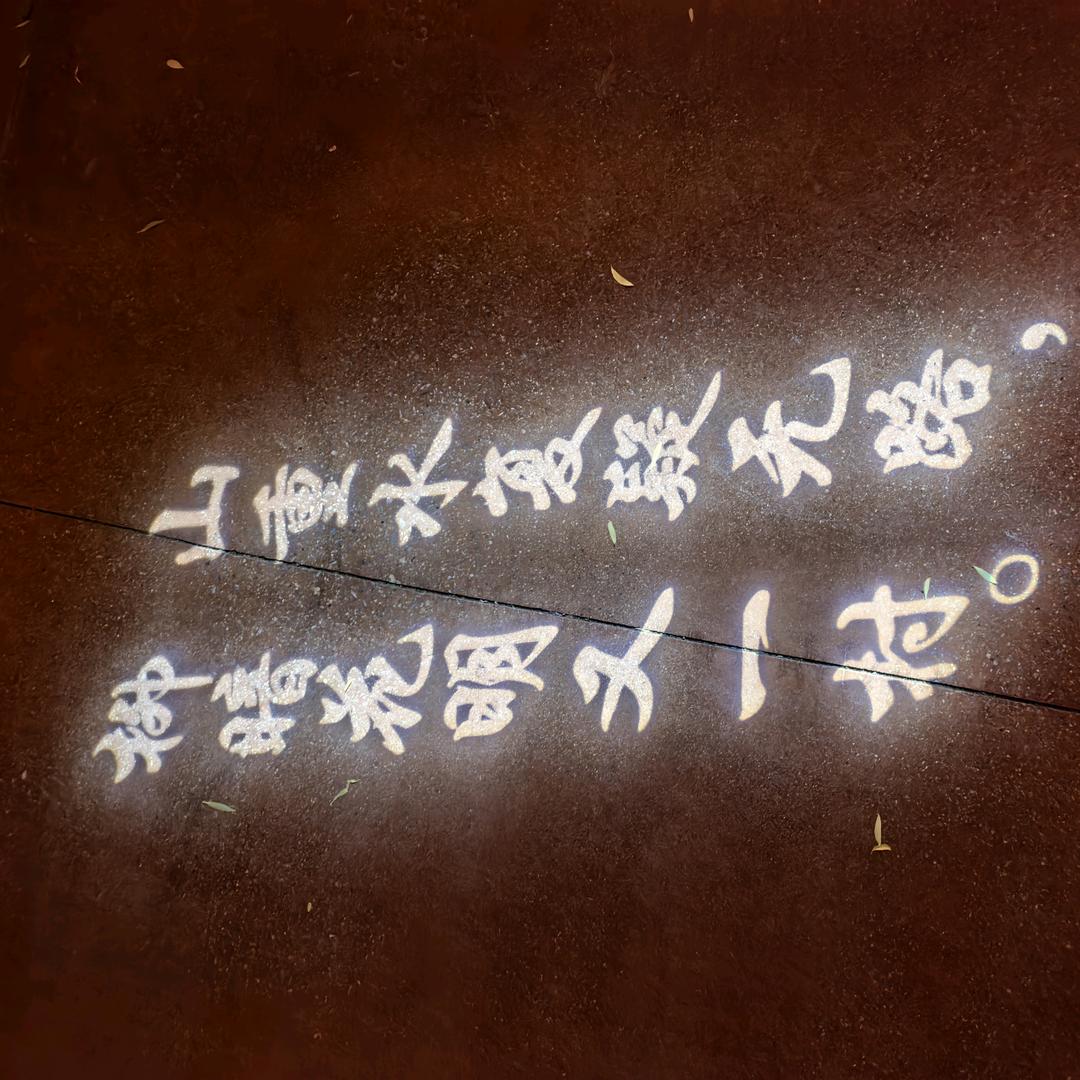 山重水复疑无路，
柳暗花明又一村。